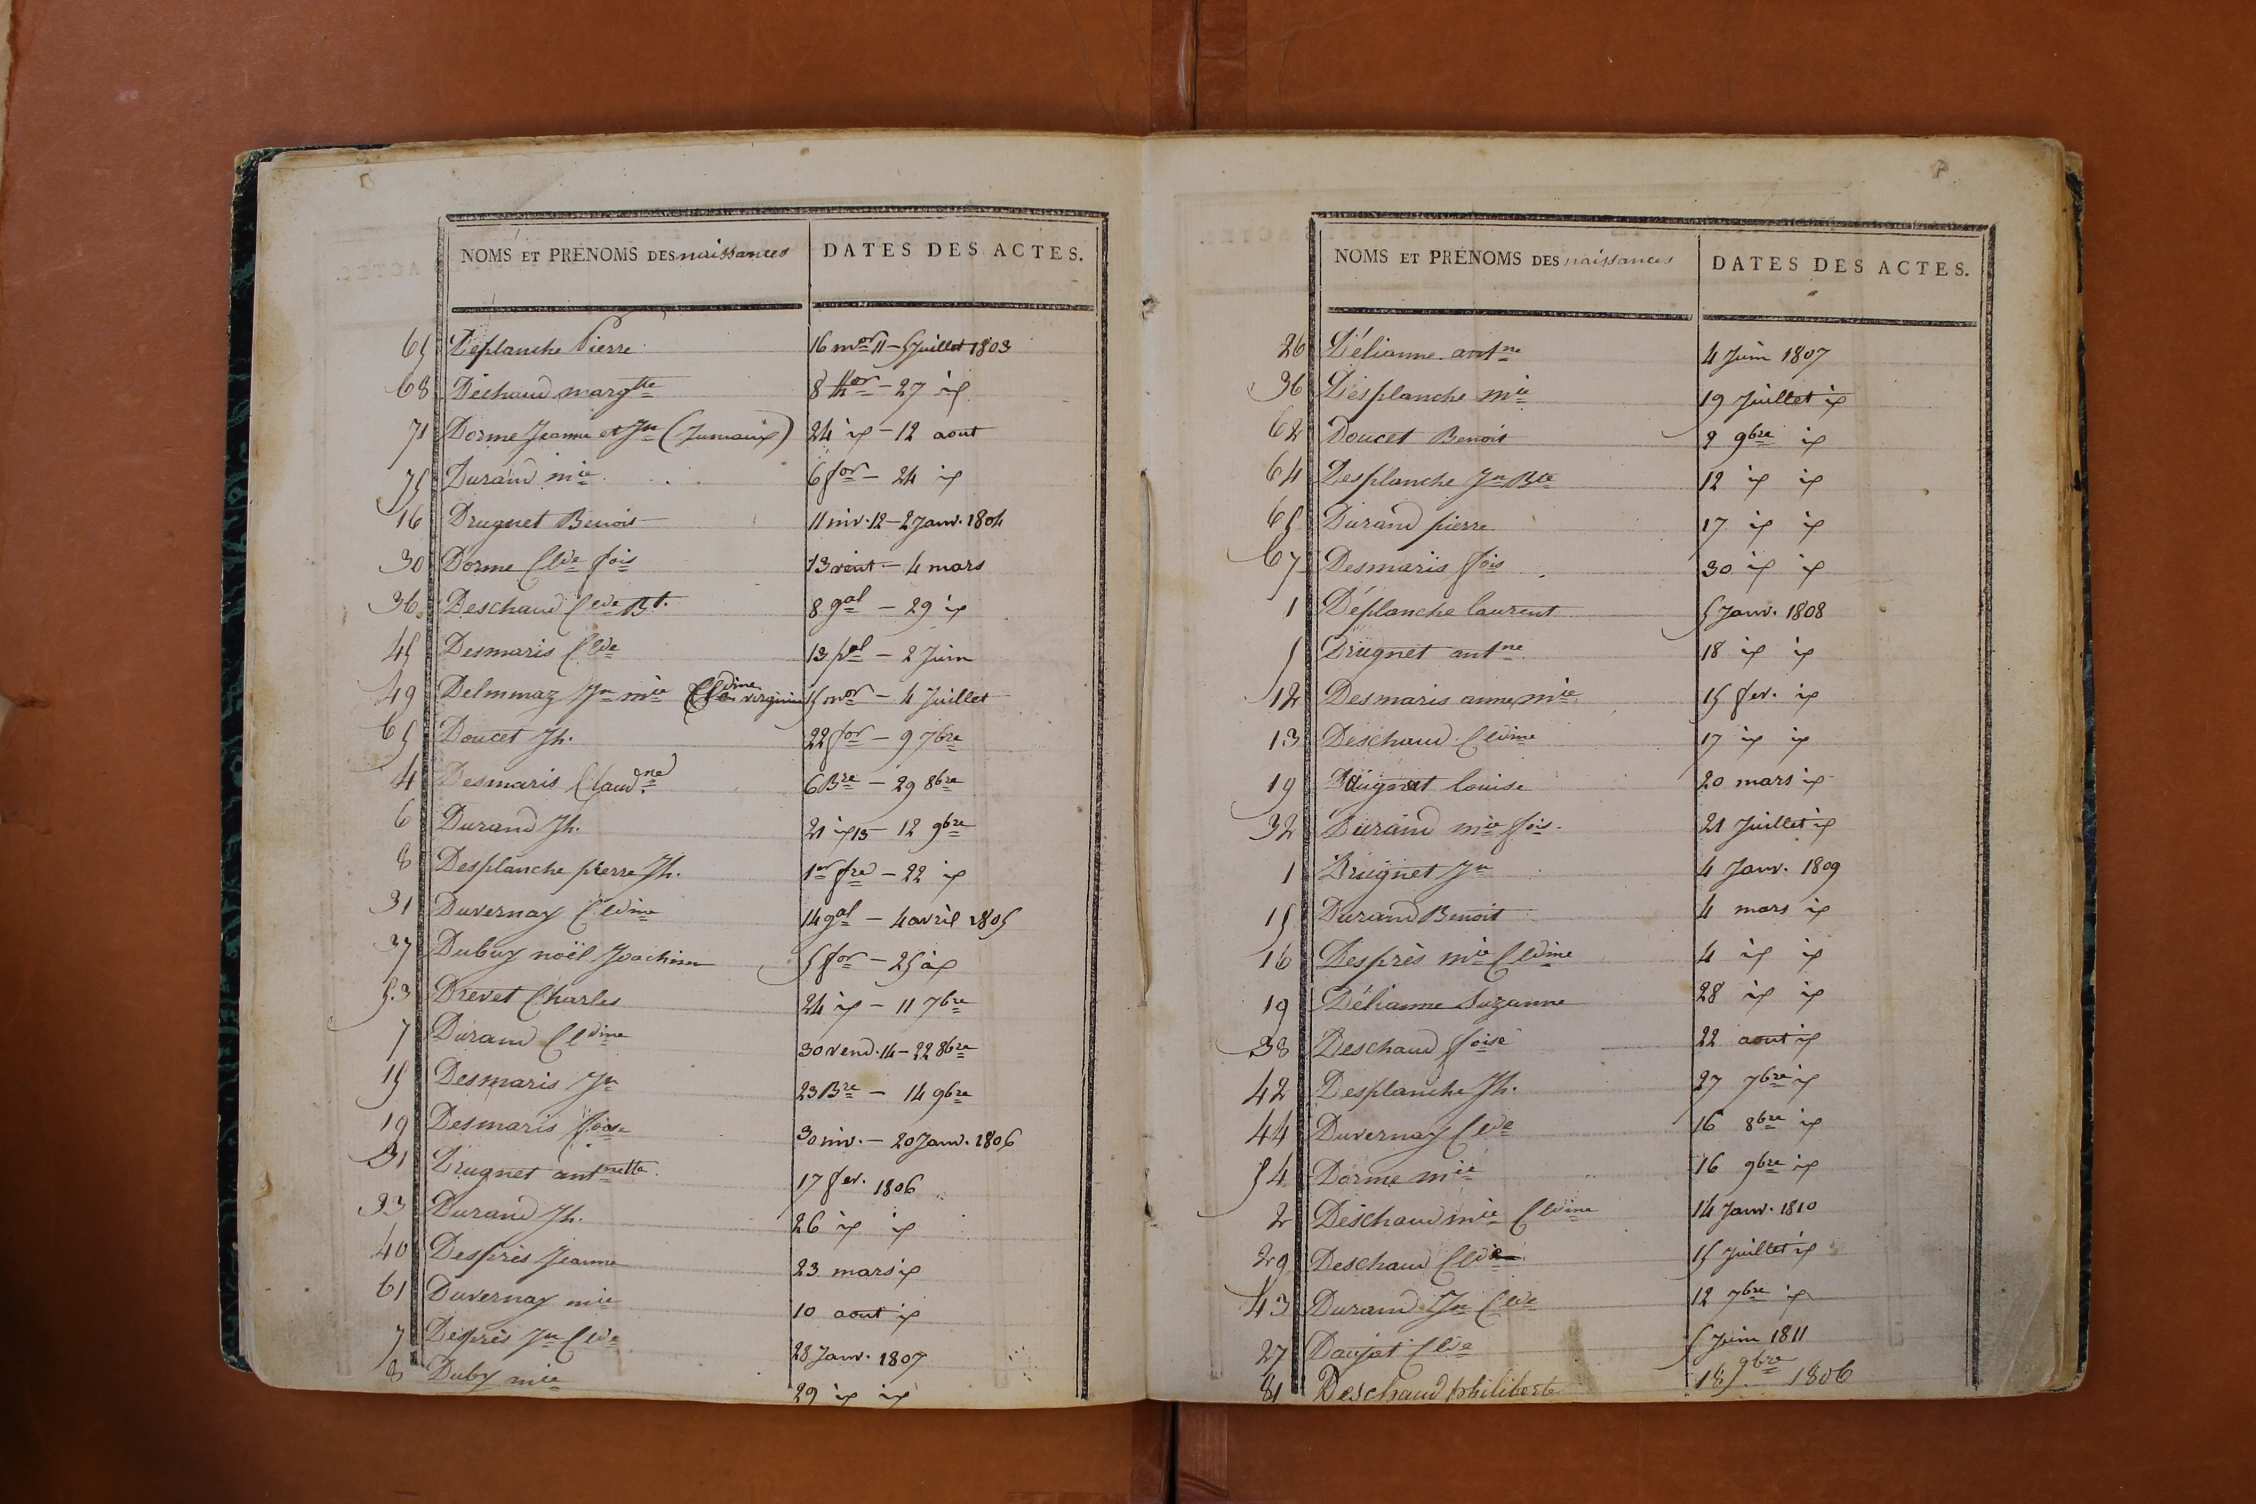 NOMS ET PRÉNOMS DES naissances DATES DES ACTES.
65 Déplanche Pierre 16 mor 11 – 5 Juillet 1803
68 Déchaud margtte 8 thor – 27 ix
71 Dorme Jeanne et Jn (Jumaux) 24 ix – 12 aout
75 Durand mie 6 for – 24 ix
16 Drugnet Benoit 11 niv. 12 – 2 Janv. 1804
30 Dorme Clde fois 13 vent – 4 mars
36 Deschaud Clde Bt. 8 gal – 29 ix
45 Desmaris Clde 13 pal – 2 Juin
49 Delmmaz Jn mie Cldine virginie 15 mor – 4 Juillet
65 Doucet Jh. 22 for – 9 7bre
4 Desmaris Claudne 6 Bre – 29 8bre
6 Durand Jh. 21 ix 13 – 12 9bre
8 Desplanche pierre Jh. 1er fre – 22 ix
31 Duvernay Cldine 14 gal – 4 avril 1805
37 Dubuy noël Joachim 5 for – 25 ix
53 Drevet Charles 24 ix – 11 7bre
7 Durand Cldine 30 vend. 14 – 22 8bre
15 Desmaris Jn 23 Bre – 14 9bre
19 Desmaris foise 30 niv. – 20 Janv. 1806
21 Drugnet antnette 17 fev. 1806
23 Durand Jh. 26 ix ix
40 Desprès Jeanne 23 mars ix
61 Duvernay mie 10 aout ix
7 Desprès Jn Clde 28 Janv. 1807
8 Duby mie 29 ix ix
NOMS ET PRÉNOMS DES naissances DATES DES ACTES.
26 Délianne antne 4 Juin 1807
36 Désplanche mie 19 Juillet ix
62 Doucet Benoit 2 9bre ix
64 Desplanche Jn Bte 12 ix ix
65 Durand pierre 17 ix ix
67 Desmaris fois 30 ix ix
1 Déplanche laurent 5 Janv. 1808
5 Drugnet antne 18 ix ix
12 Desmaris anne mie 15 fev. ix
13 Deschaud Cldine 17 ix ix
19 louise 20 mars ix
32 Durand mie fois. 21 Juillet ix
1 Drugnet Jn 4 Janv. 1809
15 Durand Benoit 4 mars ix
16 Desprès mie Cldine 4 ix ix
19 Délianne Suzanne 28 ix ix
38 Deschaud foise 22 aout ix
42 Desplanche Jh. 27 7bre ix
44 Duvernay Clde 16 8bre ix
54 Dorme mie 16 9bre ix
2 Déschaud mie Cldine 14 Janv. 1810
29 Deschaud Clde 15 Juillet ix
43 Durand Jn Clde 12 7bre ix
27 Daujat Clde 5 Juin 1811
81 Deschaud philiberte 18 9bre 1806